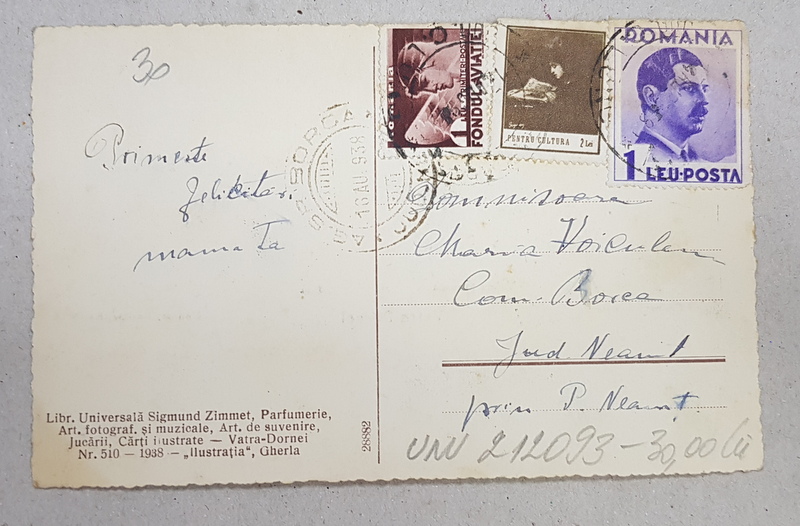 30
Primeste
felicitari
mama Ta
Libr. Universală Sigmund Zimmet, Parfumerie,
Art. fotograf. și muzicale, Art. de suvenire,
Jucării, Cărți ilustrate — Vatra-Dornei
Nr. 510 - 1938 - „Ilustrația“, Gherla
28882
16 AU. 938
1 LEU
FONDUL AVIATIEI
PENTRU CULTURA 2 Lei
ROMANIA
1 LEU-POSTA
Domnisoara
Maria Voiculescu
Com. Borca
Jud Neamt
prin P. Neamț
UNV 212093-30,00 lei